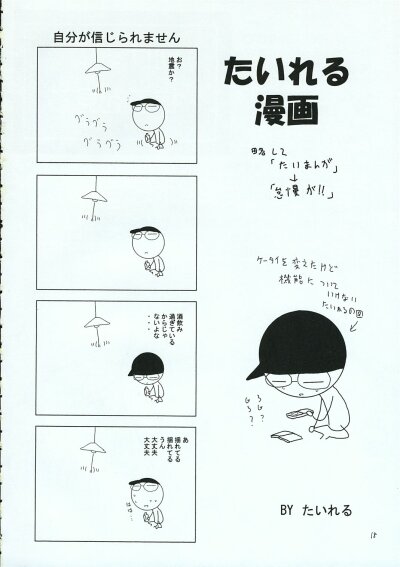 自分が信じられません
お?
地震か?
グラグラ
グラグラ
酒飲み
過ぎている
からじゃ
ないよな
・・・
あ
揺れてる
揺れてる
うん
大丈夫
大丈夫
たいれる
漫画
略して
「たいまんが」
↓
「怠慢が!!」
ケータイを変えたけど
機能について
いけない
たいれるの図
BY たいれる
15